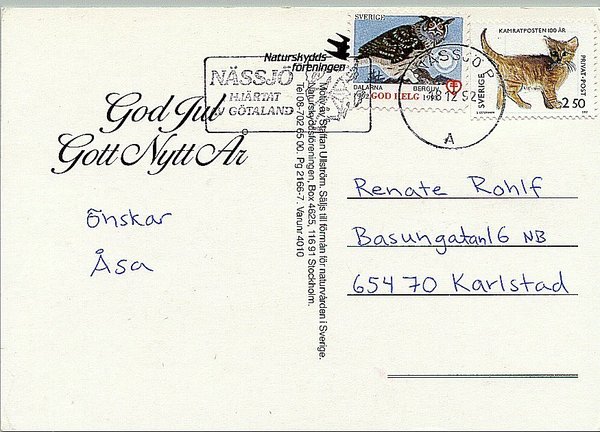 God Jul
Gott Nytt År
önskar
Åsa
Naturskydds
föreningen
NÄSSJÖ
HJÄRTAT
AV GÖTALAND
SVERIGE
DALARNA
BERGUV
1992 GOD HELG 1993
KAMRATPOSTEN 100 ÅR
SVERIGE
PRIVAT-POST
2 50
NÄSSJÖ
18 12 92
A
Staffan Ullström. Säljs till förmån för naturvården i Sverige.
Naturskyddsföreningen, Box 4625, 116 91 Stockholm.
Tel 08-702 65 00. Pg 2166-7. Varunr 4010
Renate Rohlf
Basungatan 16 NB
654 70 Karlstad